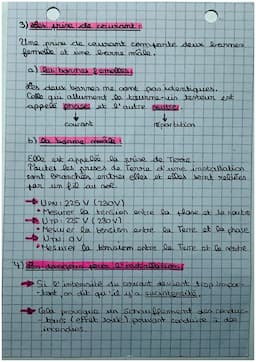 3) Les prise de courant:
Une prise de courant comporte deux bornes
femelle et une borne mâle.
a) les bornes femelles:
Les deux bornes ne sont pas identiques.
Celle qui allument le tourne-vis testeur est
appelé phase et l'autre neutre
courant répartition
b) la borne mâle:
Elle est appelée la prise de Terre.
Toutes les prises de Terre d'une installation
sont branchées entre elles et elles sont reliées
par un fil au sol.
→ UPN: 225 V (230V)
• Mesurer la tension entre la phase et le neutre
→ UPT: 225 V (230V)
• Mesurer la tension entre la Terre et la phase
→ UTN: 0V
• Mesurer la tension entre la Terre et le neutre
4) les dangers pour l'installation:
→ Si l'intensité du courant devient trop impor-
tant, on dit qu'il y a surintensité.
→ Cela provoque un échauffement des conduc-
teurs (effet Joule) pouvant conduire à des
incendies.